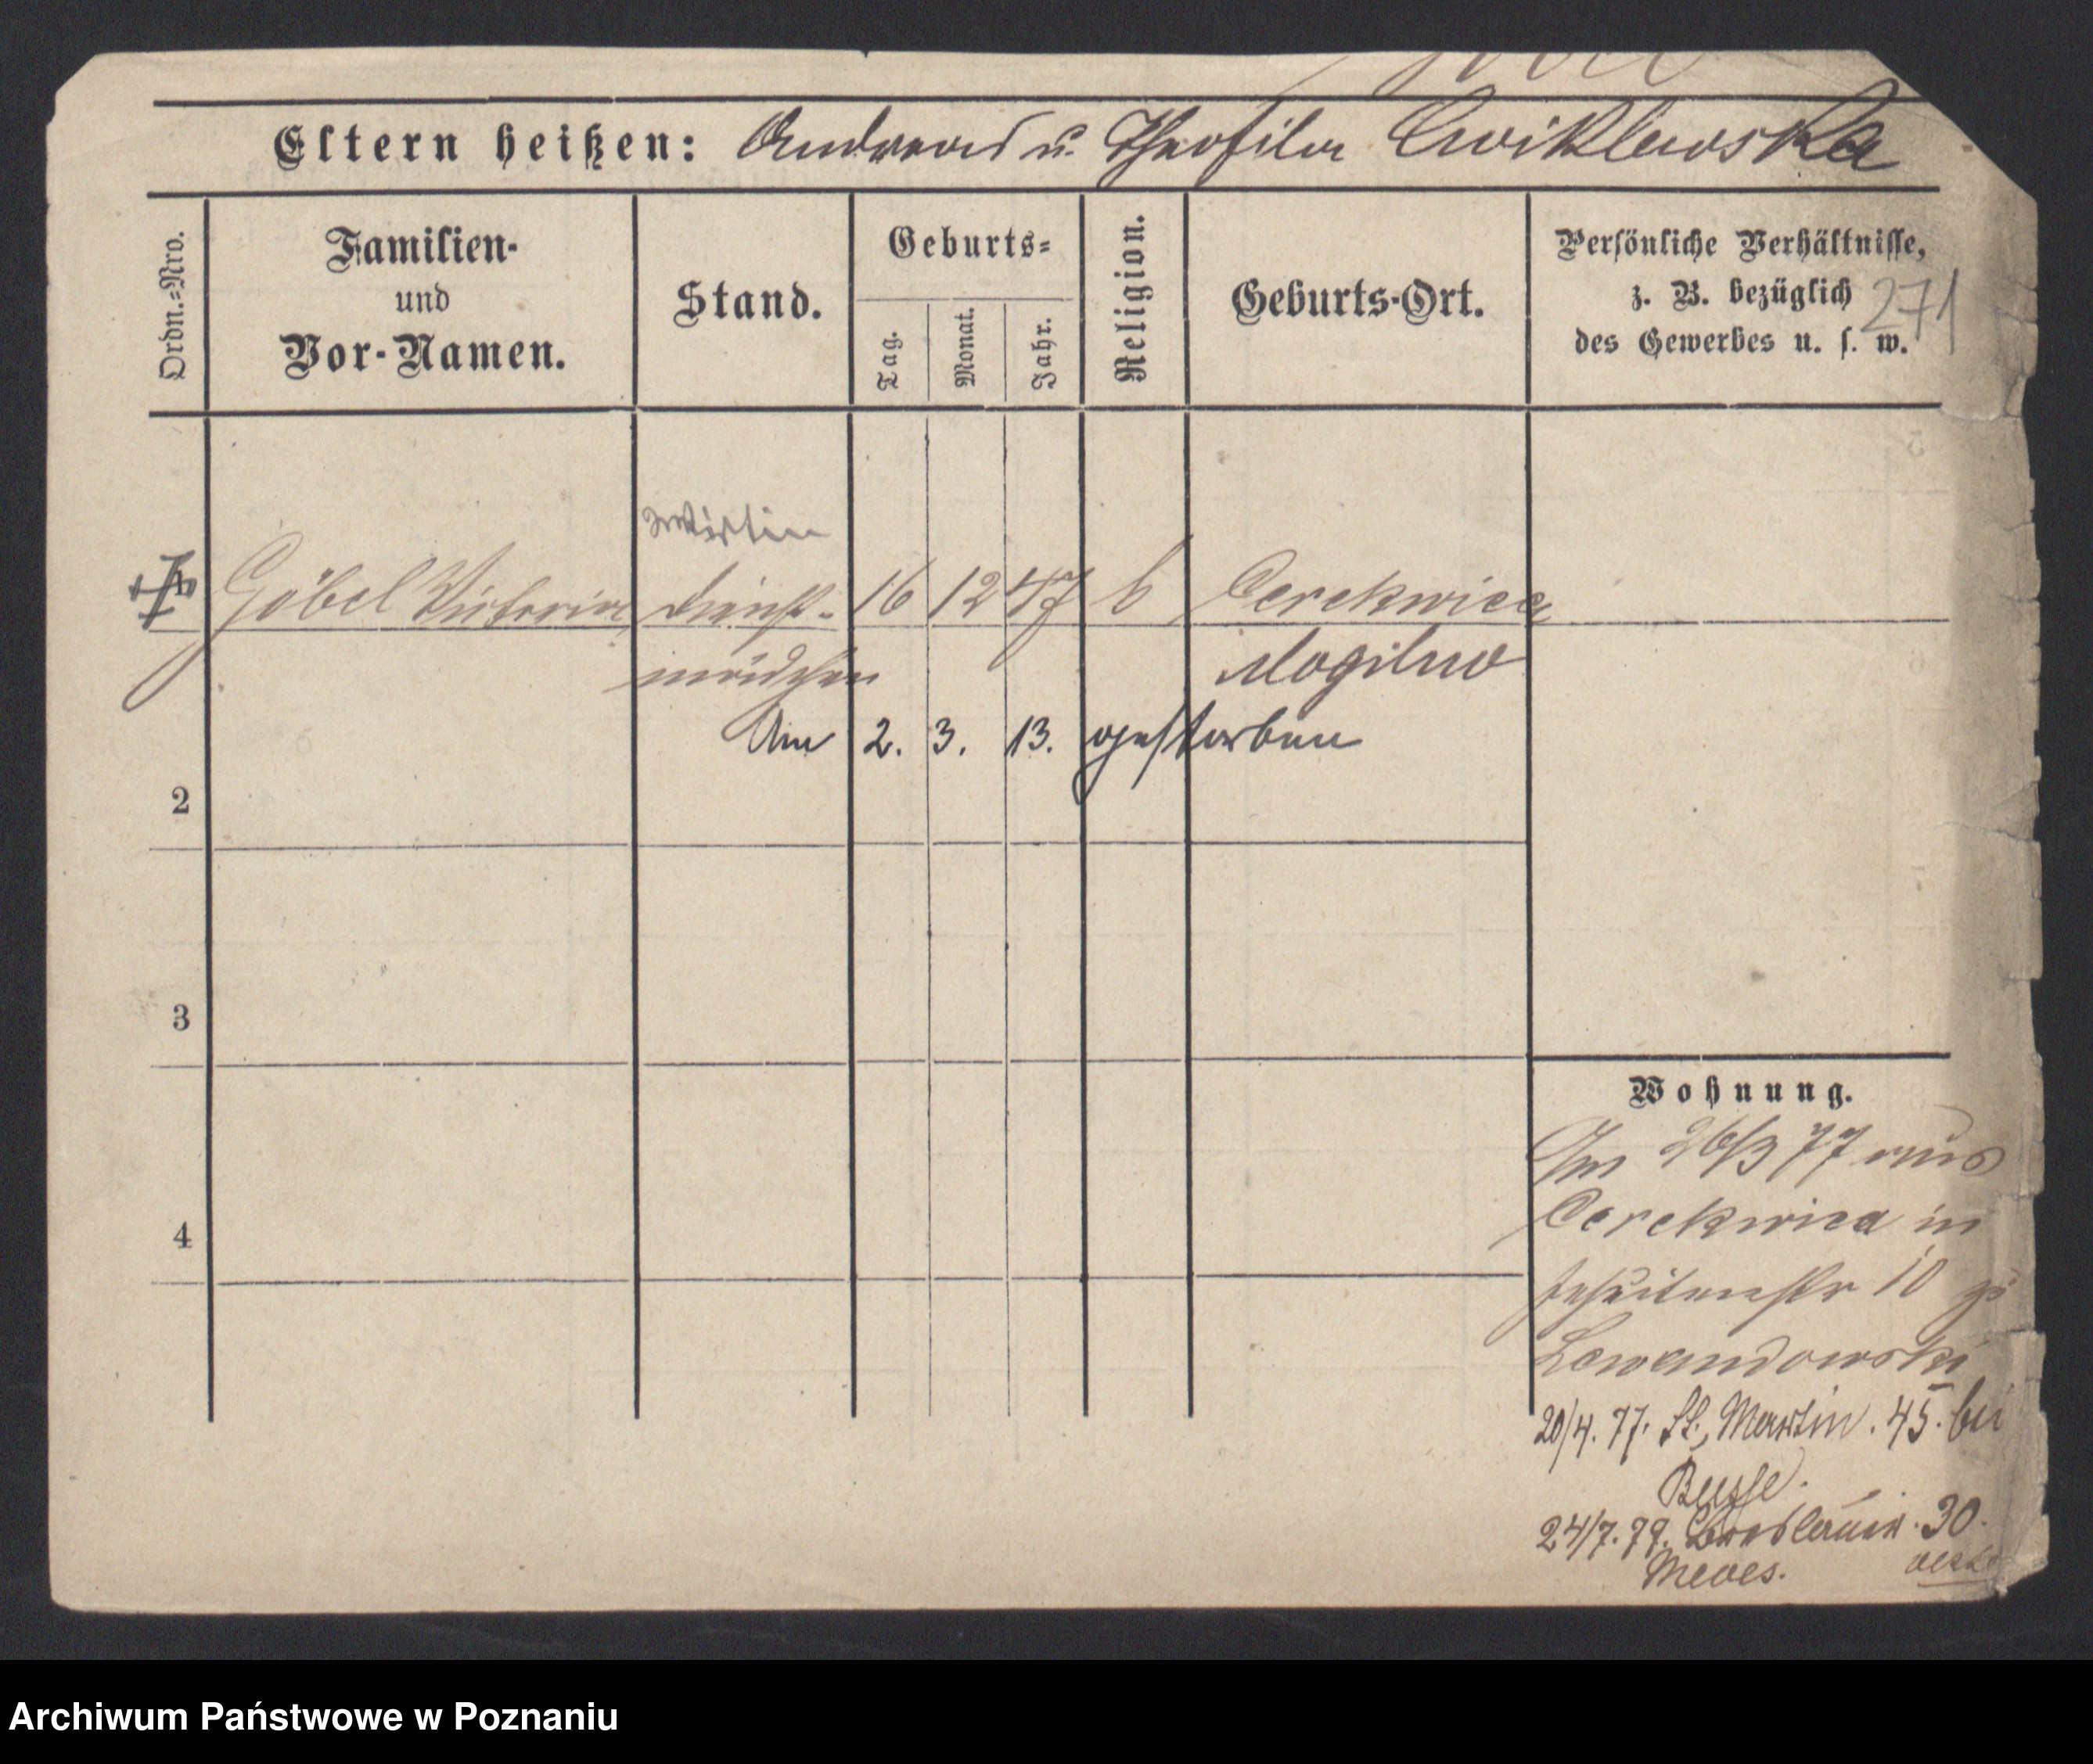 Eltern heißen: Andreas u. Theofila Cwiklewska
Ordn.=Nro.
Familien-
und
Vor-Namen.
Stand.
Geburts=
Tag.
Monat.
Jahr.
Religion.
Geburts-Ort.
Persönliche Verhältnisse,
z. B. bezüglich
des Gewerbes u. s. w.
271
Wirtin
Göbel Victoria Dienst- 16 12 47 k Cerekwica
mädchen Mogilno
Am 2. 3. 13. gestorben
2
3
4
Wohnung.
Im 26/3 77 aus
Cerekwica in
Jesuitenstr 10 
Lewandowski
20/4. 77. St. Martin. 45. bei
Busse.
24/7. 79. Breslauer. 30.
Meves.
Archiwum Państwowe w Poznaniu